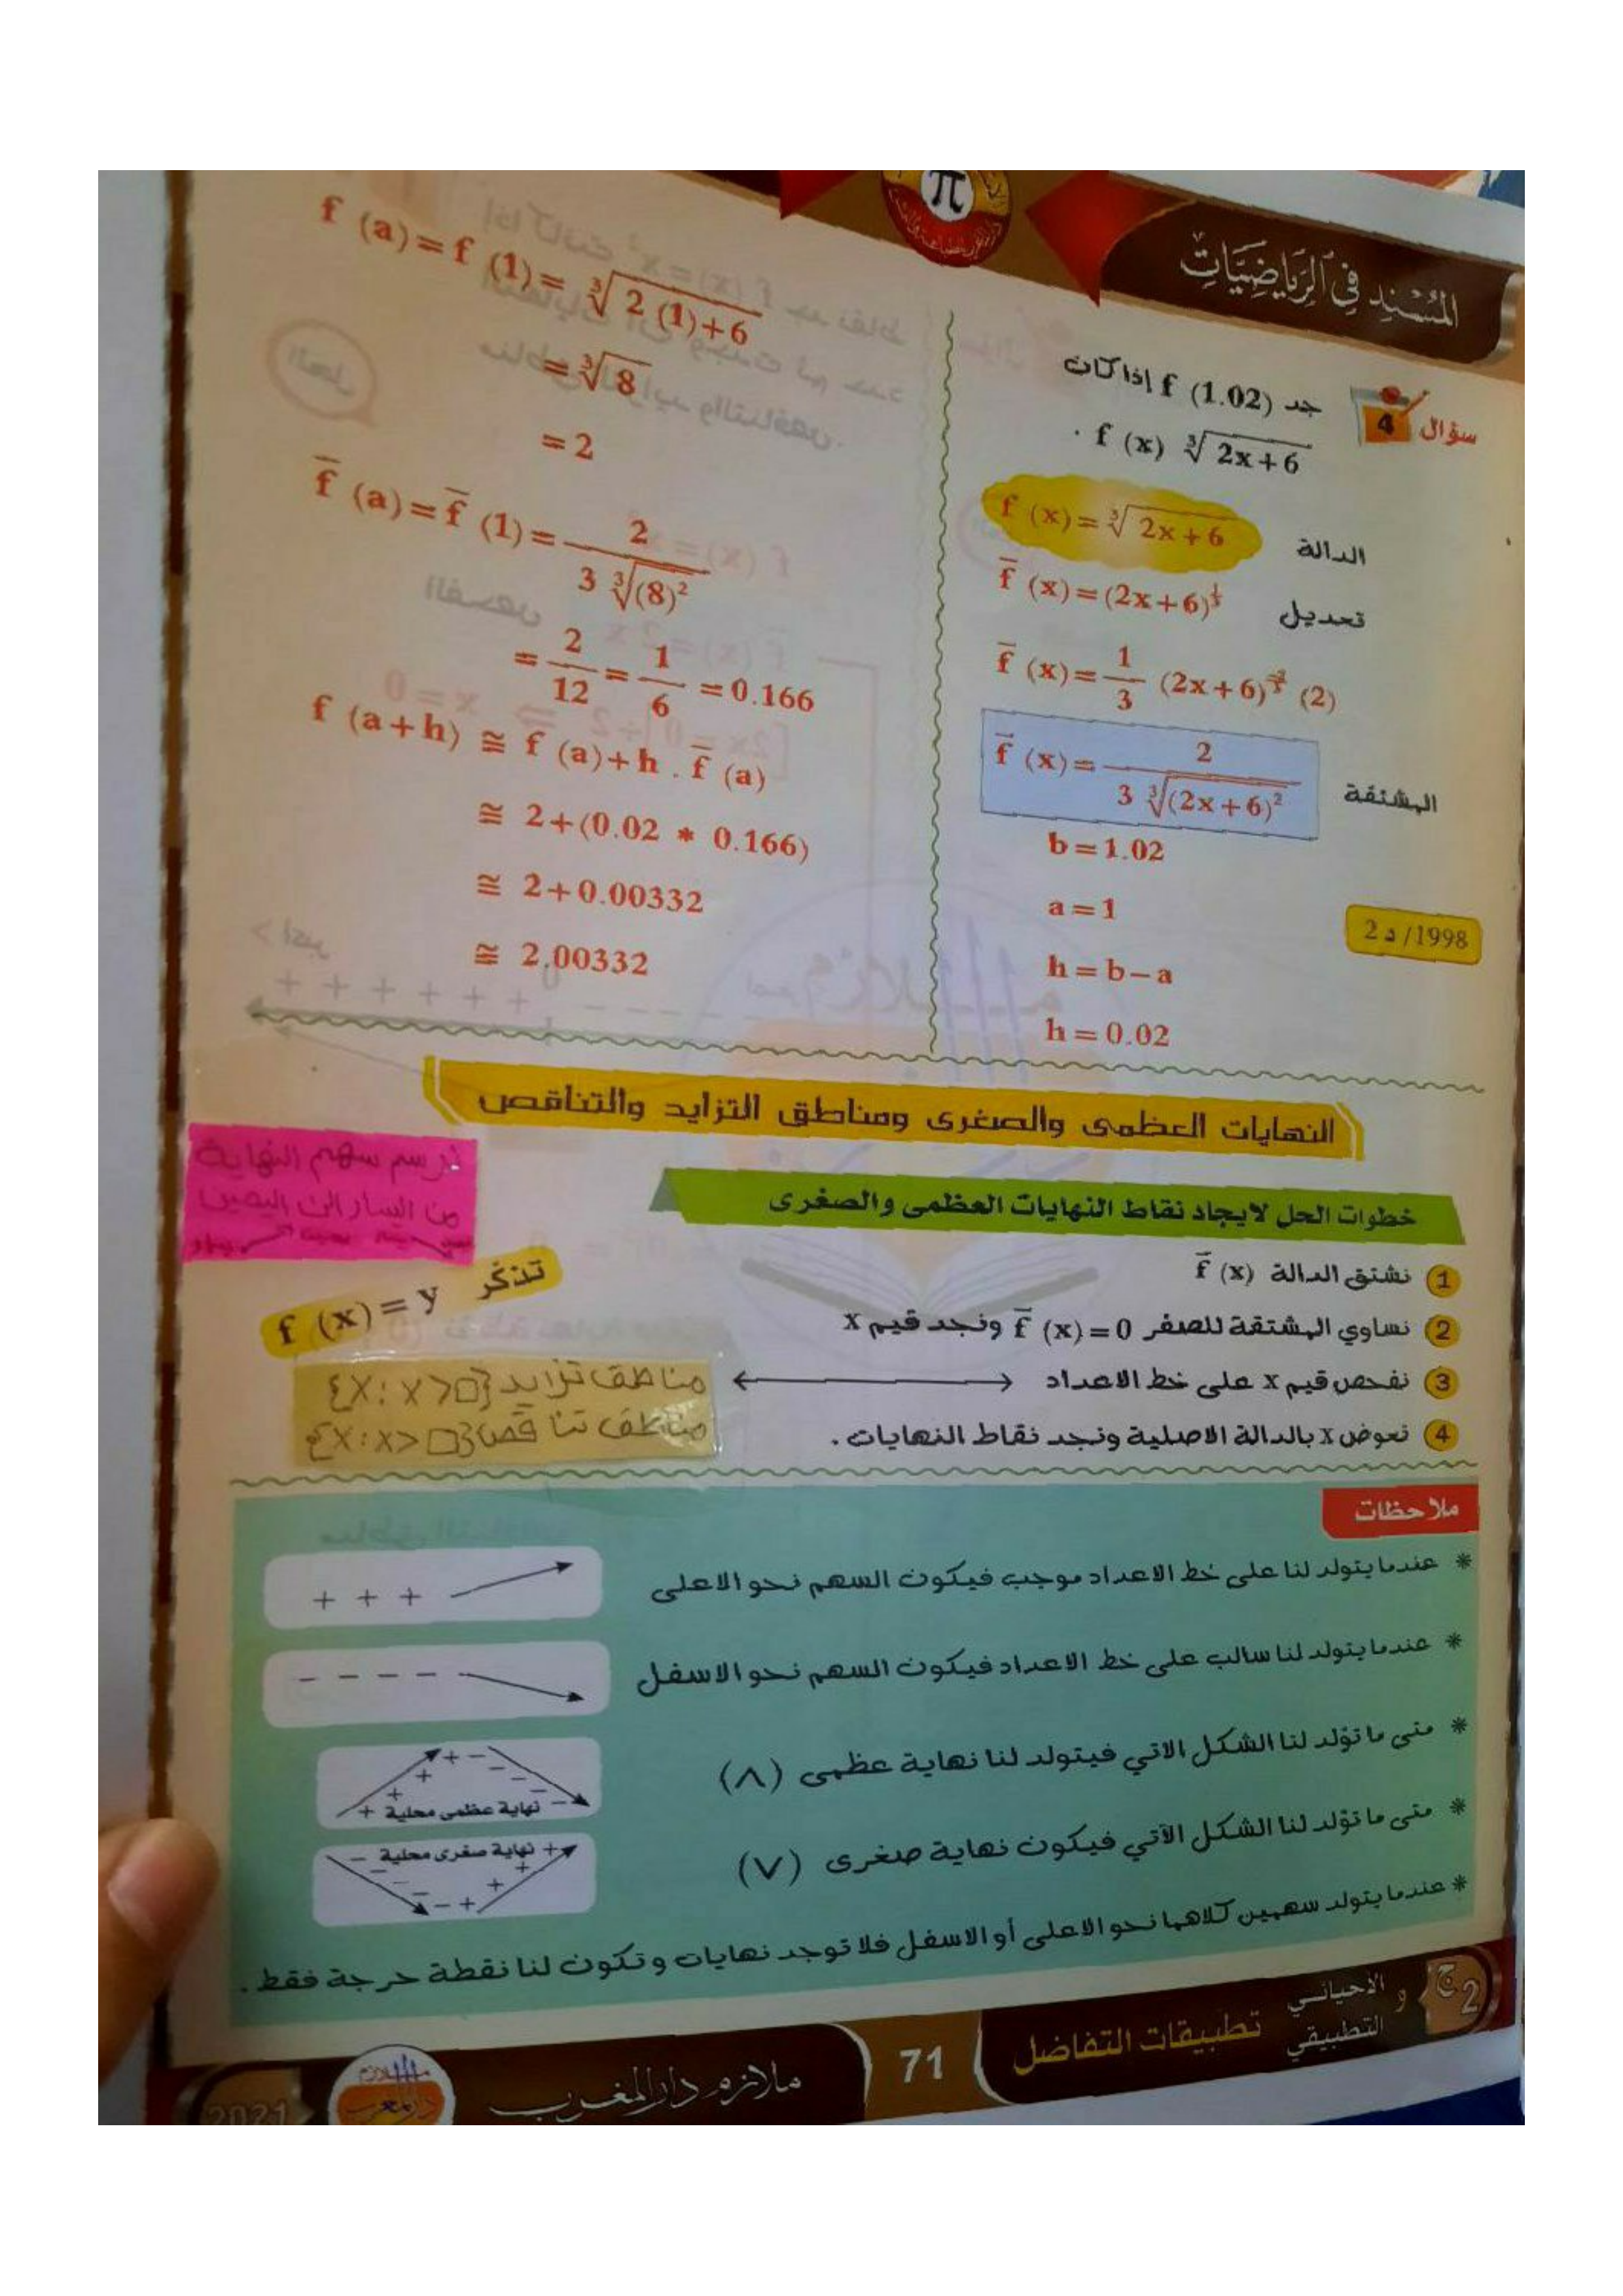 المُسْنِد فِي الرِّيَاضِيَّاتِ
π
سؤال 4
جد f (1.02) إذا كان
f (x) ∛2x+6 .
الدالة f (x)=∛2x+6
تعديل f̄ (x)=(2x+6)^⅓
f̄ (x)=1/3 (2x+6)^(-2/3) (2)
المشتقة f̄ (x)=2/(3 ∛(2x+6)²)
b=1.02
a=1
2د /1998
h=b−a
h=0.02
f (a)=f (1)=∛2 (1)+6
=∛8
=2
f̄ (a)=f̄ (1)=2/(3 ∛(8)²)
=2/12=1/6=0.166
f (a+h) ≅ f (a)+h . f̄ (a)
≅ 2+(0.02 * 0.166)
≅ 2+0.00332
≅ 2.00332
النهايات العظمى والصغرى ومناطق التزايد والتناقص
نرسم سهم النهاية
من اليسار الى اليمين
خطوات الحل لايجاد نقاط النهايات العظمى والصغرى
1 نشتق الدالة f̄ (x)
2 نساوي المشتقة للصفر f̄ (x)=0 ونجد قيم x
3 نفحص قيم x على خط الاعداد
4 نعوض x بالدالة الاصلية ونجد نقاط النهايات .
تذكّر
f (x)=y
مناطق تزايد {x : x>□}
مناطق تناقص {x : x<□}
ملاحظات
* عندما يتولد لنا على خط الاعداد موجب فيكون السهم نحو الاعلى
+ + +
* عندما يتولد لنا سالب على خط الاعداد فيكون السهم نحو الاسفل
− − − −
* متى ما تؤلد لنا الشكل الاتي فيتولد لنا نهاية عظمى (٨)
نهاية عظمى محلية
* متى ما تؤلد لنا الشكل الآتي فيكون نهاية صغرى (٧)
نهاية صغرى محلية
* عندما يتولد سهمين كلاهما نحو الاعلى أو الاسفل فلا توجد نهايات و تكون لنا نقطة حرجة فقط .
ج2 و الأحيائي التطبيقي
تطبيقات التفاضل
71
ملازم دار المغرب
2021